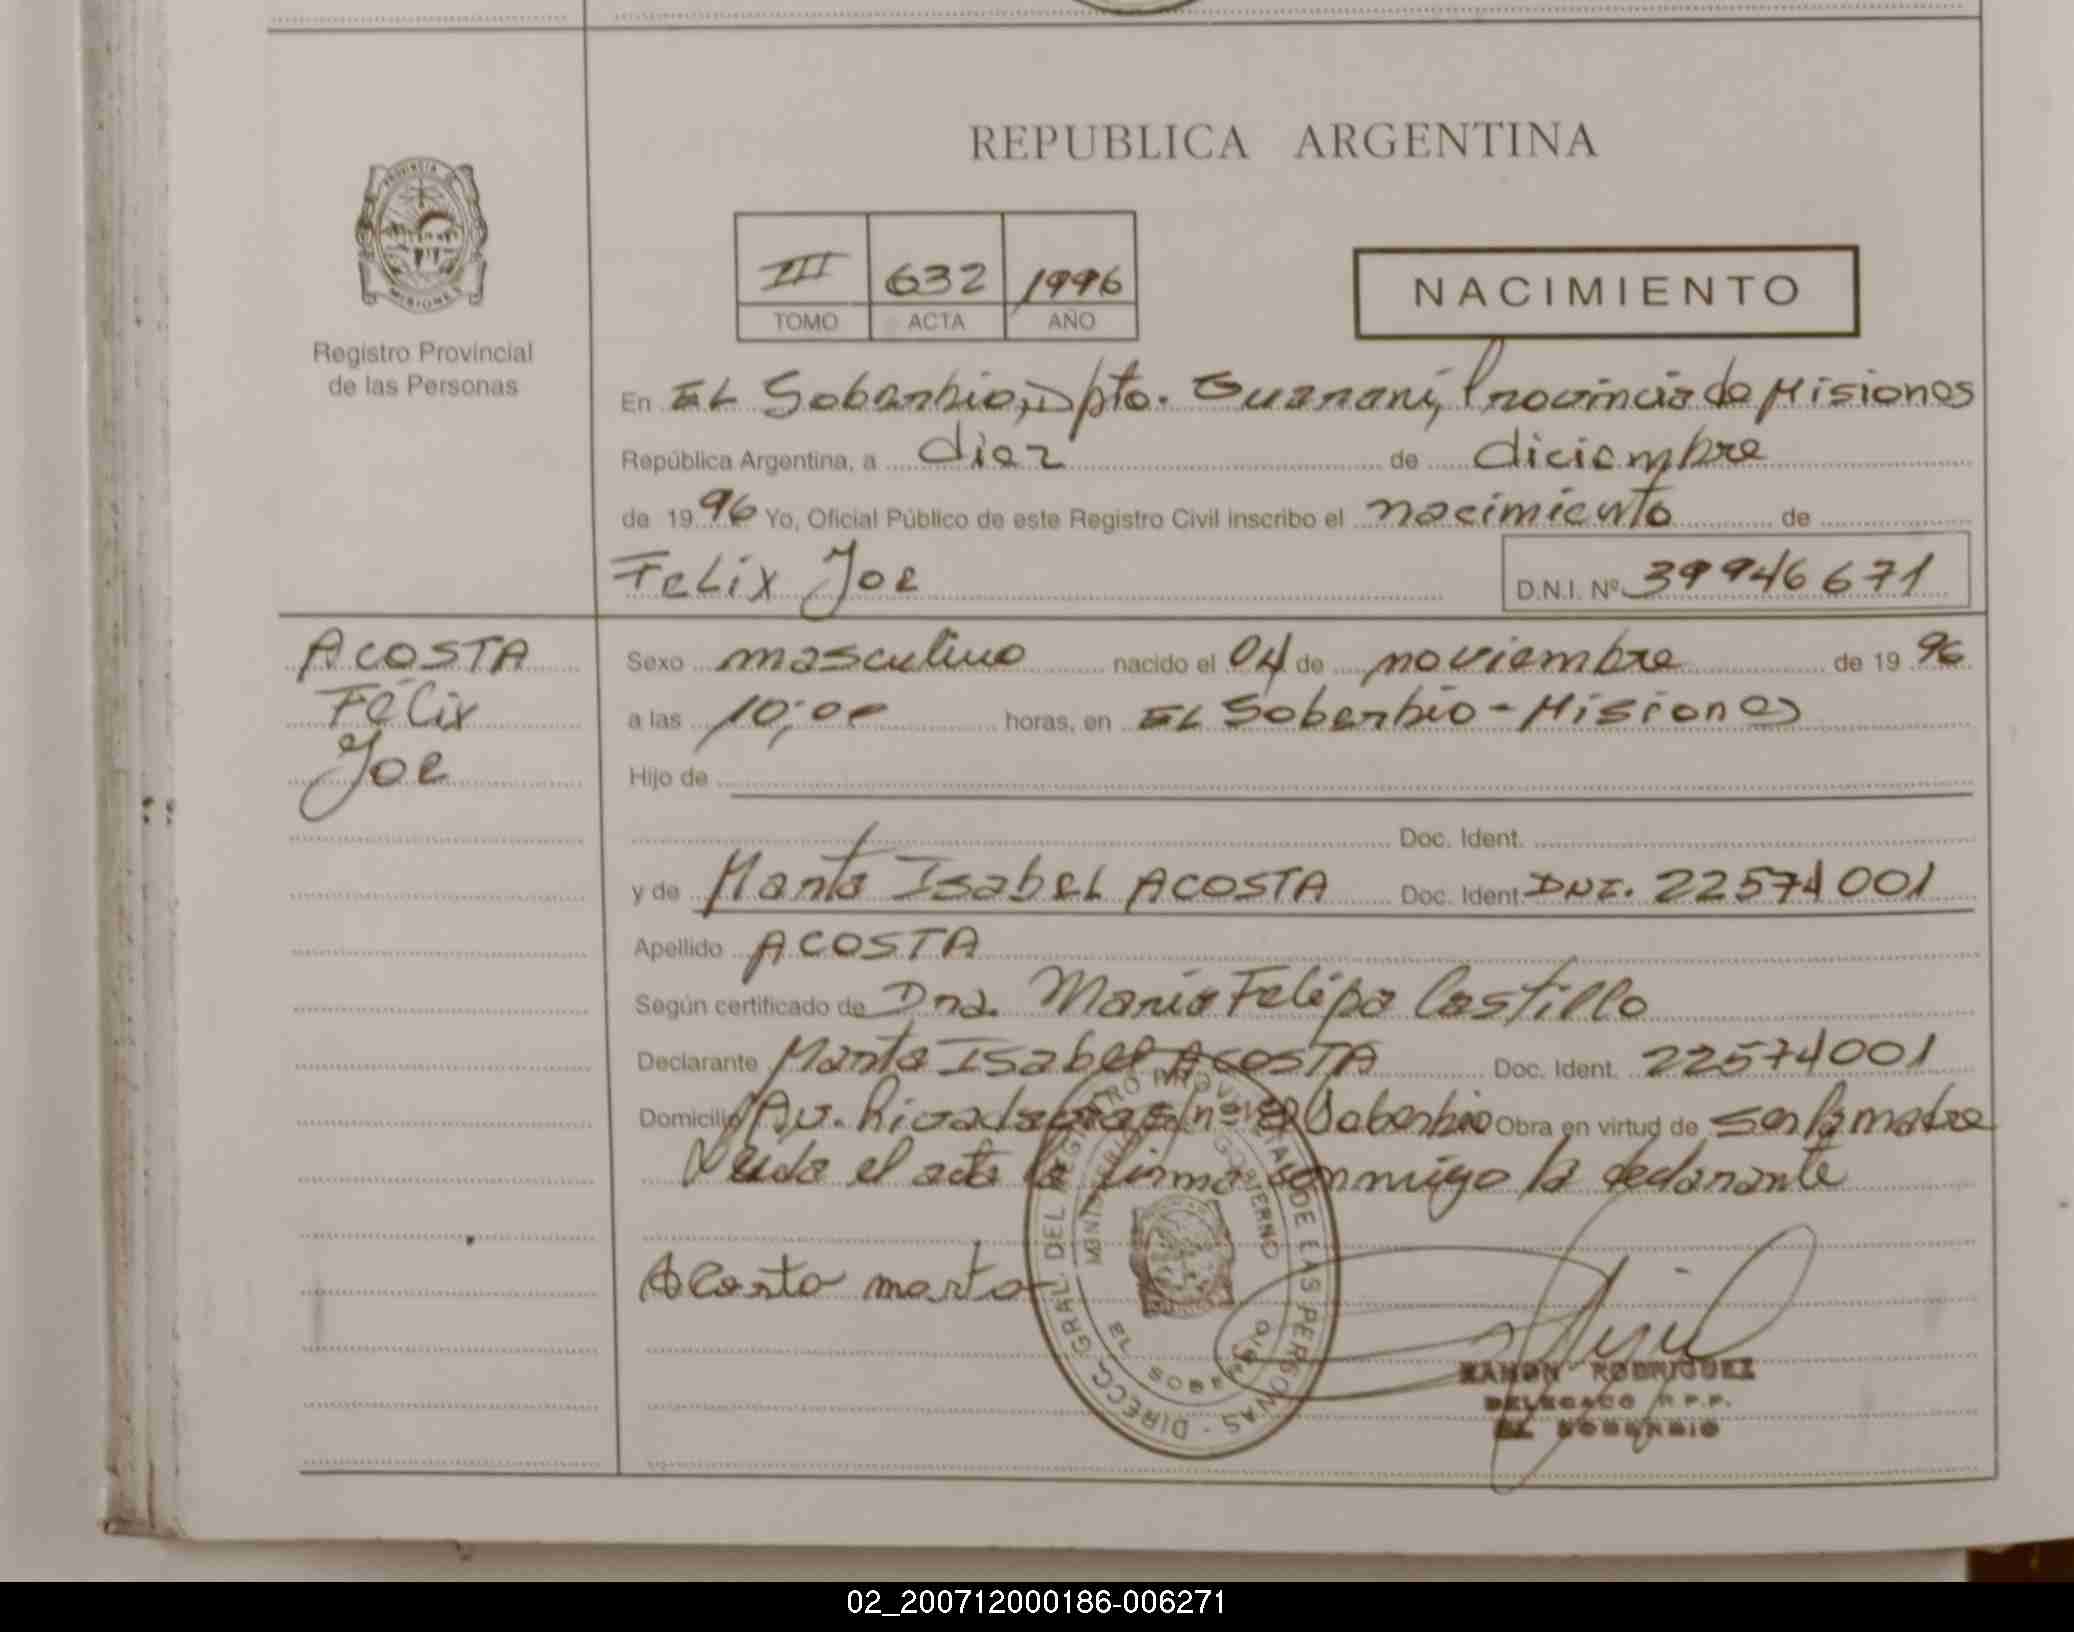 REPUBLICA ARGENTINA
PROVINCIA DE
MISIONES
Registro Provincial
de las Personas
III 632 1996
TOMO ACTA AÑO
NACIMIENTO
En EL Soberbio, Dpto. Guaraní, Provincia de Misiones
República Argentina, a diez de diciembre
de 1996 Yo, Oficial Público de este Registro Civil inscribo el nacimiento de
Felix Joe D.N.I. Nº 39946671
ACOSTA
Félix
Joe
Sexo masculino nacido el 04 de noviembre de 1996
a las 10:00 horas, en EL Soberbio - Misiones
Hijo de
Doc. Ident.
y de Marta Isabel ACOSTA Doc. Ident. DNI. 22574001
Apellido ACOSTA
Según certificado de Dra. Maria Felipa Castillo
Declarante Marta Isabel ACOSTA Doc. Ident. 22574001
Domicilio Av. Rivadavia s/nº El Soberbio Obra en virtud de ser la madre
Leida el acta la firma conmigo la declarante
Acosta marta
DIRECC. GRAL DEL REGISTRO PROVINCIAL DE LAS PERSONAS
MINISTERIO GOBIERNO
EL SOBERBIO
RAMON RODRIGUEZ
DELEGADO R.P.P.
EL SOBERBIO
02_200712000186-006271